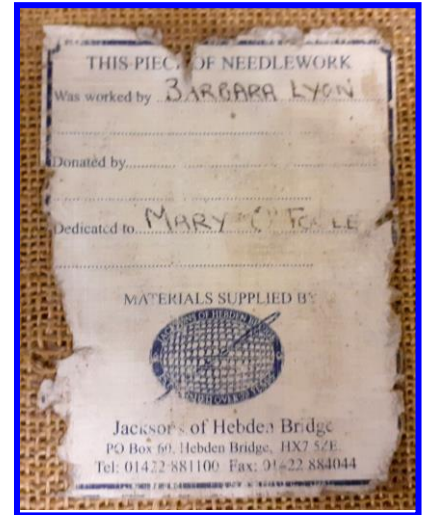 THIS PIECE OF NEEDLEWORK
Was worked by BARBARA LYON
Donated by
Dedicated to MARY "C"
MATERIALS SUPPLIED BY
JACKSONS OF HEBDEN BRIDGE
Jacksons of Hebden Bridge
PO Box 60, Hebden Bridge, HX7
Tel: 01422 881100 Fax: 01422 884044